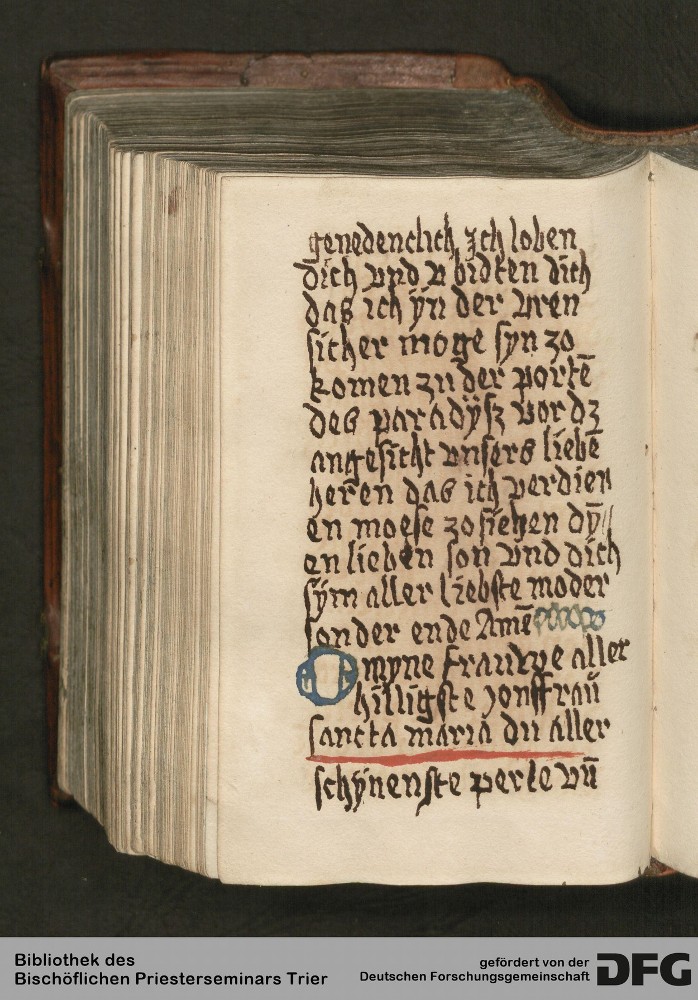 genedenclich Jch loben
dich vnd v bidten dich
das ich ÿn der vren
sicher moge syn zo
komen zu der portē
des paradÿsz vor dz
angesicht vnsers liebē
heren das ich verdien
en moese zo siehen dÿ//
en lieben son vnd dich
sÿm aller liebste moder
sonder ende Amē
O myne frauwe aller
hilligste jonffrau
sancta maria du aller
schÿnenste perle vñ
Bibliothek des
Bischöflichen Priesterseminars Trier
gefördert von der
Deutschen Forschungsgemeinschaft DFG